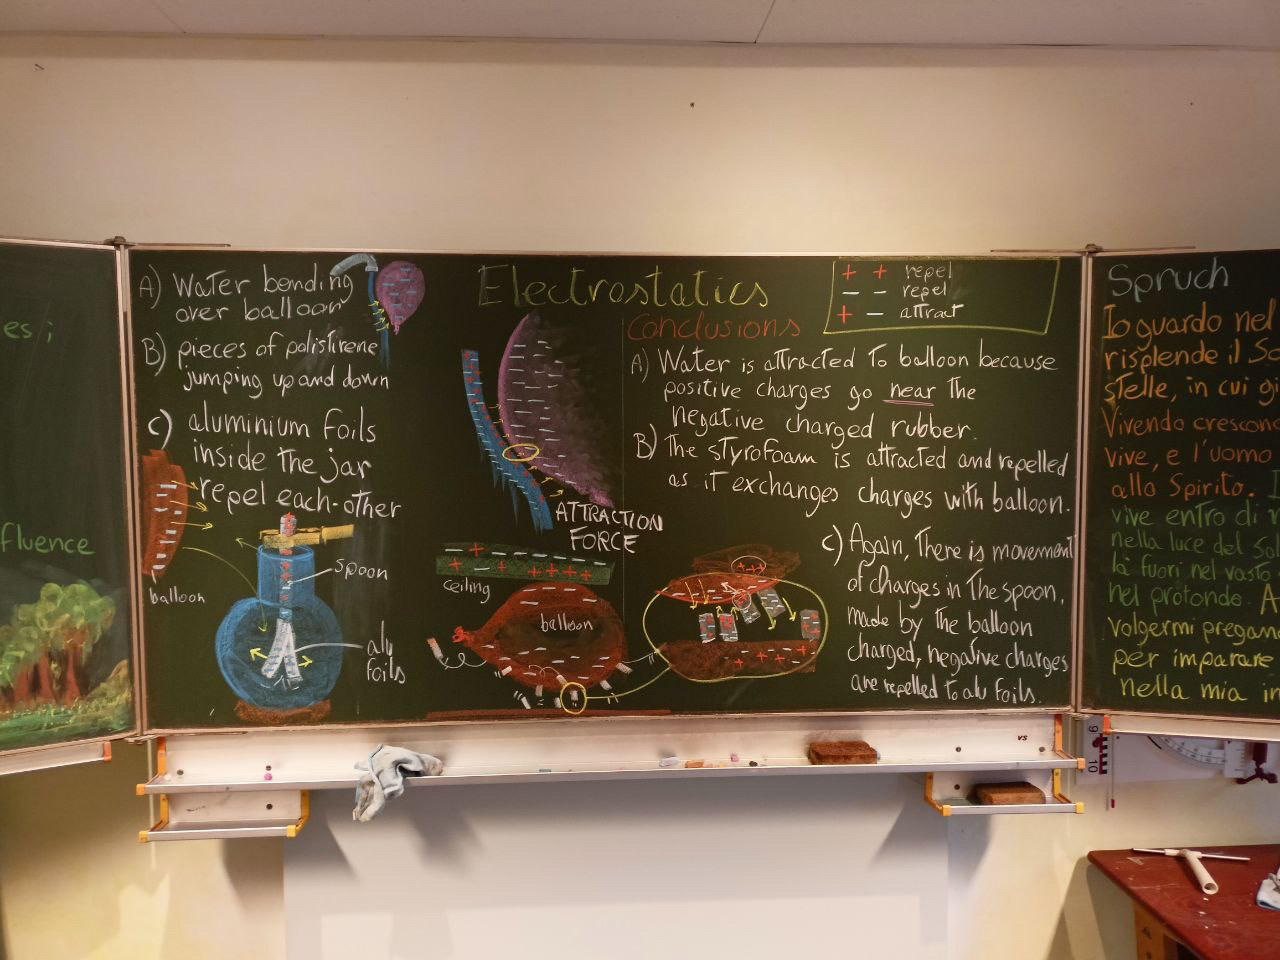 es;
fluence
A) Water bending
over balloon
B) pieces of polistirene
jumping up and down
C) aluminium foils
inside the jar
repel each-other
balloon
spoon
alu
foils
Electrostatics
ATTRACTION
FORCE
ceiling
balloon
+ + repel
- - repel
+ - attract
Conclusions
A) Water is attracted to balloon because
positive charges go near the
negative charged rubber.
B) The styrofoam is attracted and repelled
as it exchanges charges with balloon.
C) Again, there is movement
of charges in the spoon,
made by the balloon
charged, negative charges
are repelled to alu foils.
Spruch
Io guardo nel
risplende il So
stelle, in cui gi
Vivendo crescono
vive, e l'uomo
allo Spirito.
vive entro di
nella luce del Sol
là fuori nel vasto
nel profondo. A
Volgermi pregan
per imparare
nella mia in
vs
9
10